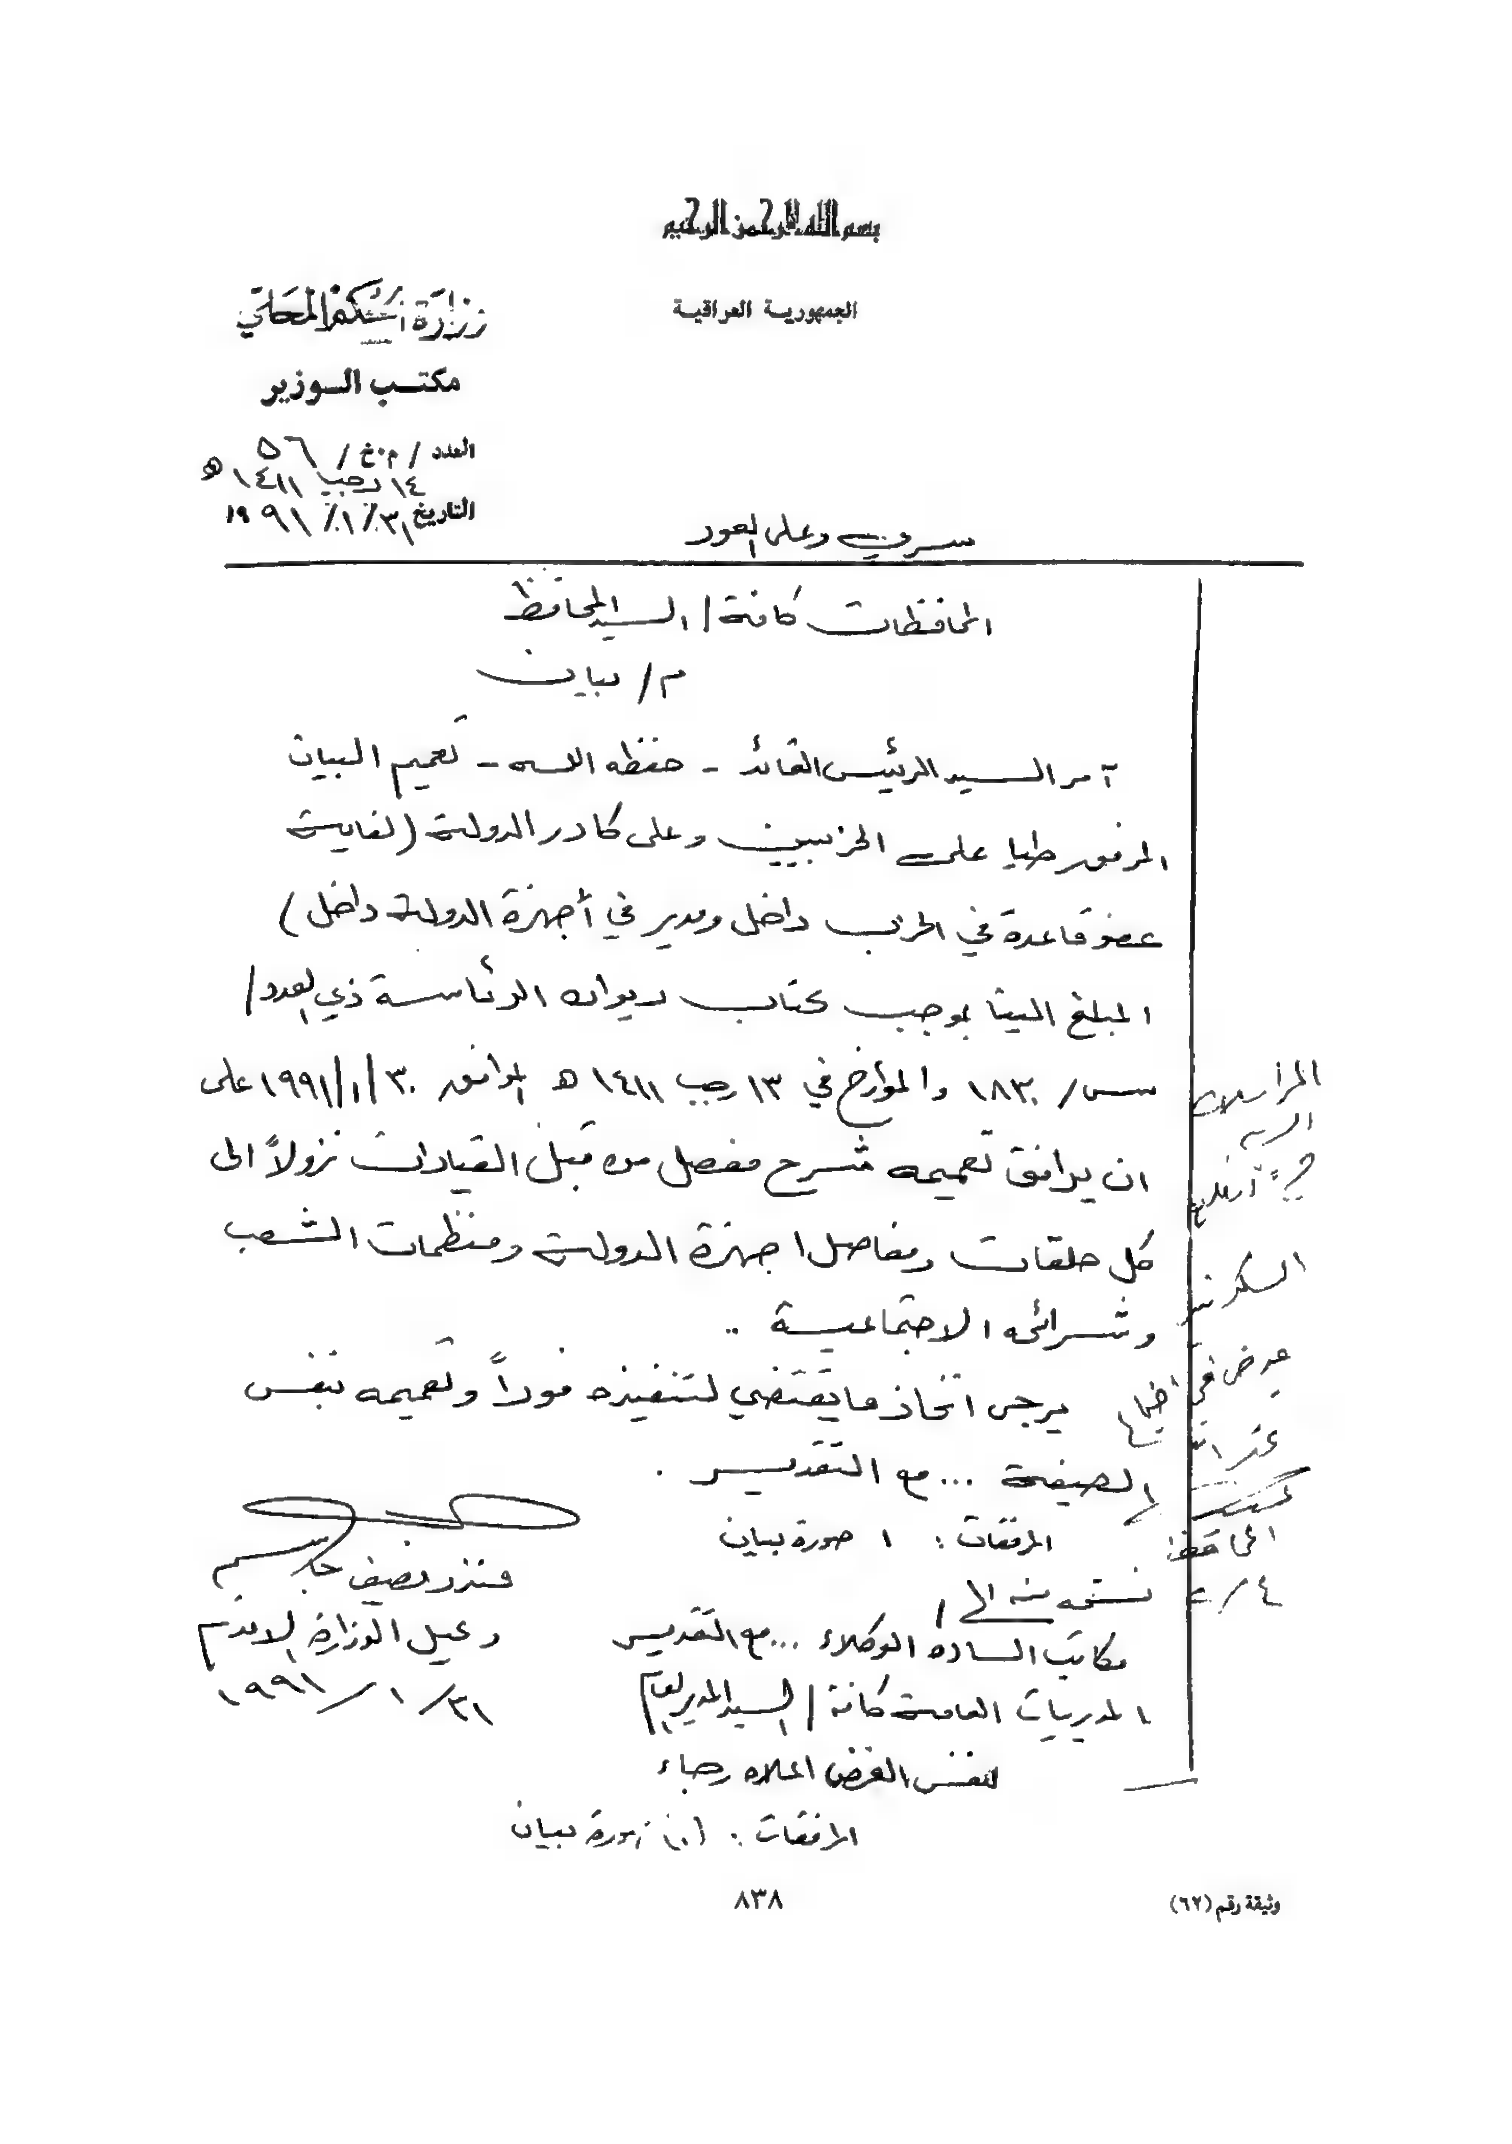 بسم الله الرحمن الرحيم
الجمهورية العراقية
وزارة الحكم المحلي
مكتب الوزير
العدد / م.خ / ٥٦
١٤ رجب ١٤١١ هـ
التاريخ ٣١/ ١/ ١٩٩١
سري وعلى الفور
المحافظات كافة / السيد المحافظ
م/ بيان
آمر السيد الرئيس القائد - حفظه الله - تعميم البيان
المرفق طيا على الحزبيين وعلى كادر الدولة (لغاية
عضو قاعدة في الحزب داخل ومدير في أجهزة الدولة داخل)
المبلغ الينا بموجب كتاب ديوان الرئاسة ذي العدد/
س س/ ١٨٣٠ والمؤرخ في ١٣ رجب ١٤١١ هـ الموافق ٣٠/١/١٩٩١ على
ان يرافق تعميمه شرح مفصل من قبل القيادات نزولاً الى
كل حلقات ومفاصل اجهزة الدولة ومنظمات الشعب
وشرائحه الاجتماعية ..
يرجى اتخاذ مايقتضي لتنفيذه فوراً وتعميمه بنفس
الصيغة ... مع التقدير .
المرفقات : ١ صورة بيان
منذر
وكيل الوزارة الاقدم
٣١/ ١/ ١٩٩١
نسخه منه الى /
مكاتب السادة الوكلاء ... مع التقدير
المديريات العامة كافة / السيد المدير العام
لنفس الغرض اعلاه رجاء
المرفقات : صورة بيان
المحافظ
وثيقة رقم (٦٢)
٨٣٨